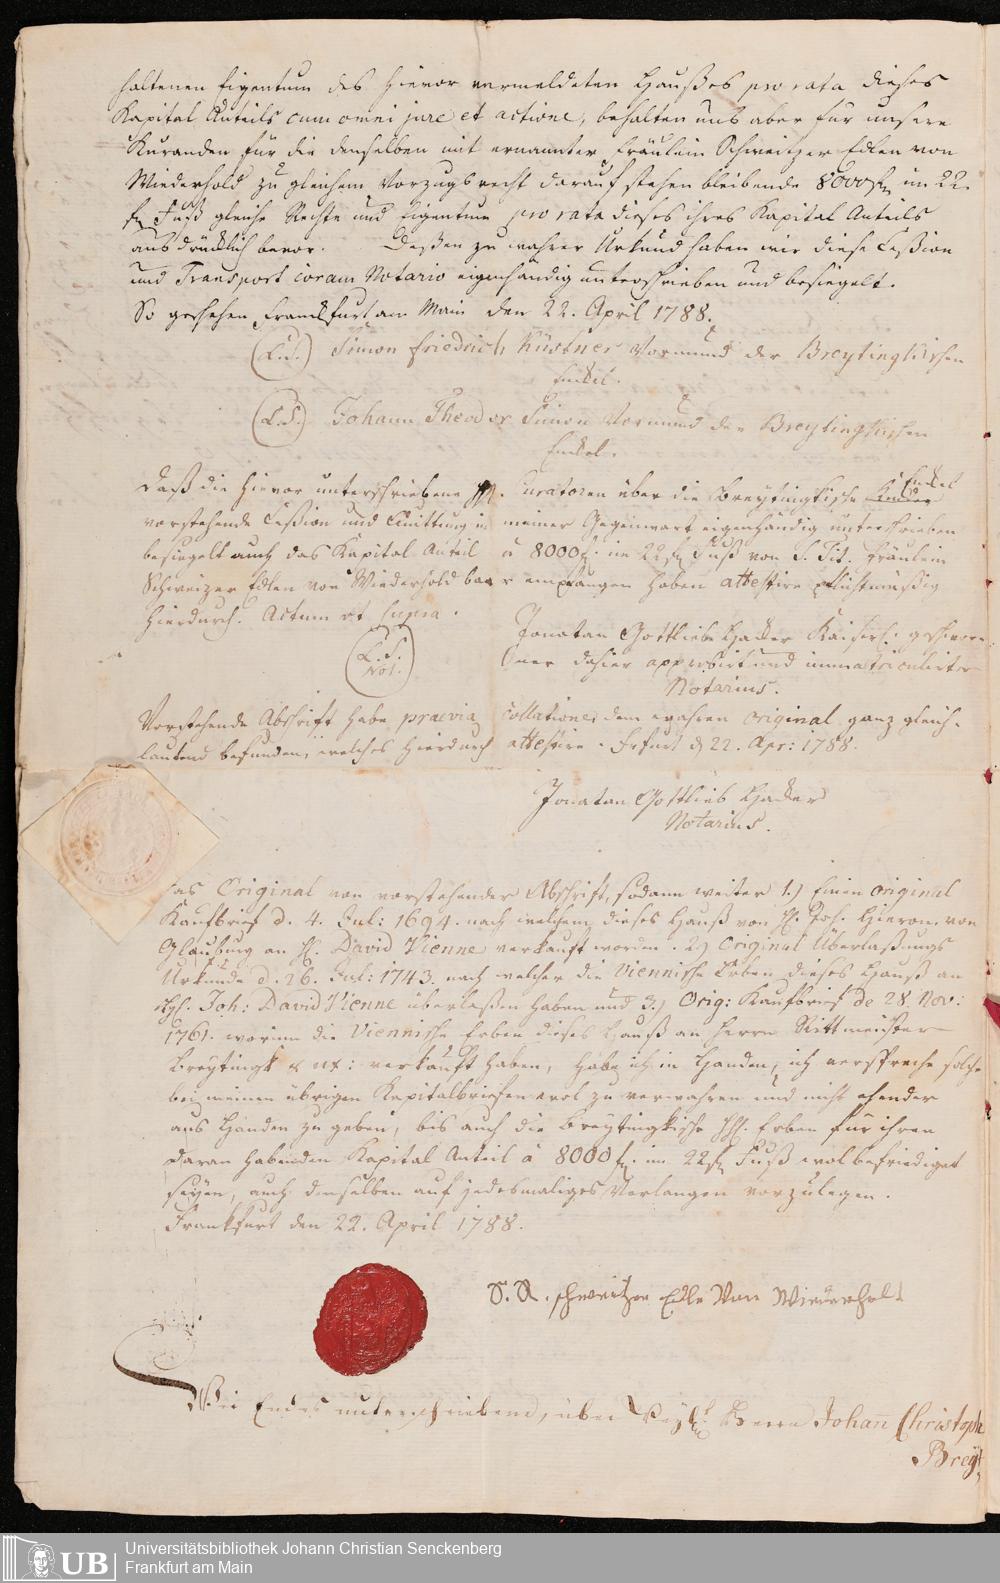 haltenen Eigentum des hievor vermeldeten Haußes pro rata dieses
Kapital Anteils cum omni jure et actione, behalten uns aber für unsere
Kuranden für die denselben mit ernannter Fräulein Schweitzer Edlen von
Wiederhold zu gleichem Vorzugsrecht darauf stehen bleibende 8000 fl im 22
fl Fuß gleiche Rechte und Eigentum pro rata dieses ihres Kapital Anteils
ausdrücklich bevor. Deßen zu wahrer Urkund haben wir diese Ceßion
und Transport coram Notario eigenhändig unterschrieben und besiegelt.
So geschehen Franckfurt am Main den 22. April 1788.
(L.S.) Simon Friedrich Küstner Vormund der Breytingkischen
Enckel.
(L.S.) Johann Theodor Simon Vormund der Breytingkischen
Enckel.
Daß die hievor unterschriebene HH. Curatoren über die Breytingkische Kinder Enckel
vorstehende Ceßion und Quittung in meiner Gegenwart eigenhändig unterschrieben
besiegelt auch das Kapital Anteil à 8000 fl. im 22 fl Fuß von S. Tit. Fräulein
Schweizer Edlen von Wiederhold baar empfangen haben attestire pflichtmäßig
hierdurch. Actum ut supra.
(L.S.
Not.)
Jonatan Gottlieb Hacker Kaiserl. geschwor-
ner dahier approbirt und immatriculirter
Notarius.
Vorstehende Abschrift habe praevia collatione, dem wahren original ganz gleich-
lautend befunden, welches hierdurch attestire. Frfurt d 22. Apr: 1788.
Jonatan Gottlieb Hacker
Notarius.
Das Original von vorstehender Abschrift, sodann weiter 1.) Einen original
Kaufbrief d. 4. Jul: 1694. nach welchem dieses Hauß von H. Joh. Hieron. von
Glauburg an H. David Vienne verkauft worden. 2) Original Überlaßungs
Urkunde d. 26. Jul: 1743. nach welcher die Viennische Erben dieses Hauß an
Hh. Joh: David Vienne überlaßen haben und 3.) Orig: Kaufbrief de 28 Nov:
1761. worinn die Viennische Erben dieses Hauß an Herrn Rittmeister
Breytingk & ux: verkauft haben, habe ich in Handen, ich verspreche solche
bei meinen übrigen Kapitalbriefen wol zu verwahren und nicht ehender
aus Handen zu geben, bis auch die Breytingkische HH. Erben für ihren
daran habenden Kapital Anteil à 8000 fl. im 22 fl Fuß wol befriediget
seyen, auch denselben auf jedesmaliges Verlangen vorzulegen.
Franckfurt den 22. April 1788.
S. A. schweitzer Edle Von Wiederholt
Wir Endes unterschriebene, über Herrn Johan Christoph
Breyt
UB
Universitätsbibliothek Johann Christian Senckenberg
Frankfurt am Main